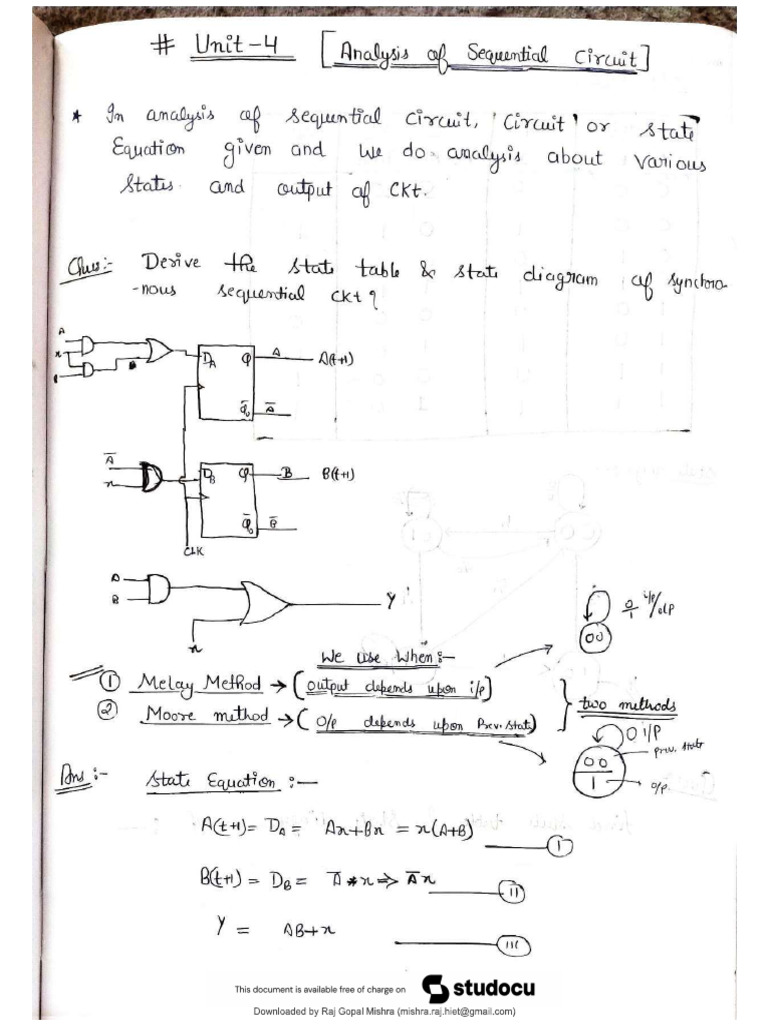 # Unit-4 [Analysis of Sequential Circuit]
* In analysis of sequential circuit, 'circuit' or state
Equation given and we do analysis about various
states and output of Ckt.
Ques:- Derive the state table & state diagram of synchro-
-nous sequential ckt?
A
x
B
D_A Q A A(t+1)
Q̅ A̅
A̅
x
D_B Q B B(t+1)
Q̅ B̅
CLK
A
B
Y
x
0/1 i/p/o/p
00
We use When:-
① Melay Method → (output depends upon i/p)
② Moore method → (O/p depends upon Prev. State)
} two methods
0 I/P
prev. state
00
1
o/p.
Ans:- State Equation:-
A(t+1) = D_A = Ax+Bx = x(A+B) ——— I
B(t+1) = D_B = A̅ * x => A̅x ——— II
Y = AB+x ——— III
This document is available free of charge on studocu
Downloaded by Raj Gopal Mishra (mishra.raj.hiet@gmail.com)